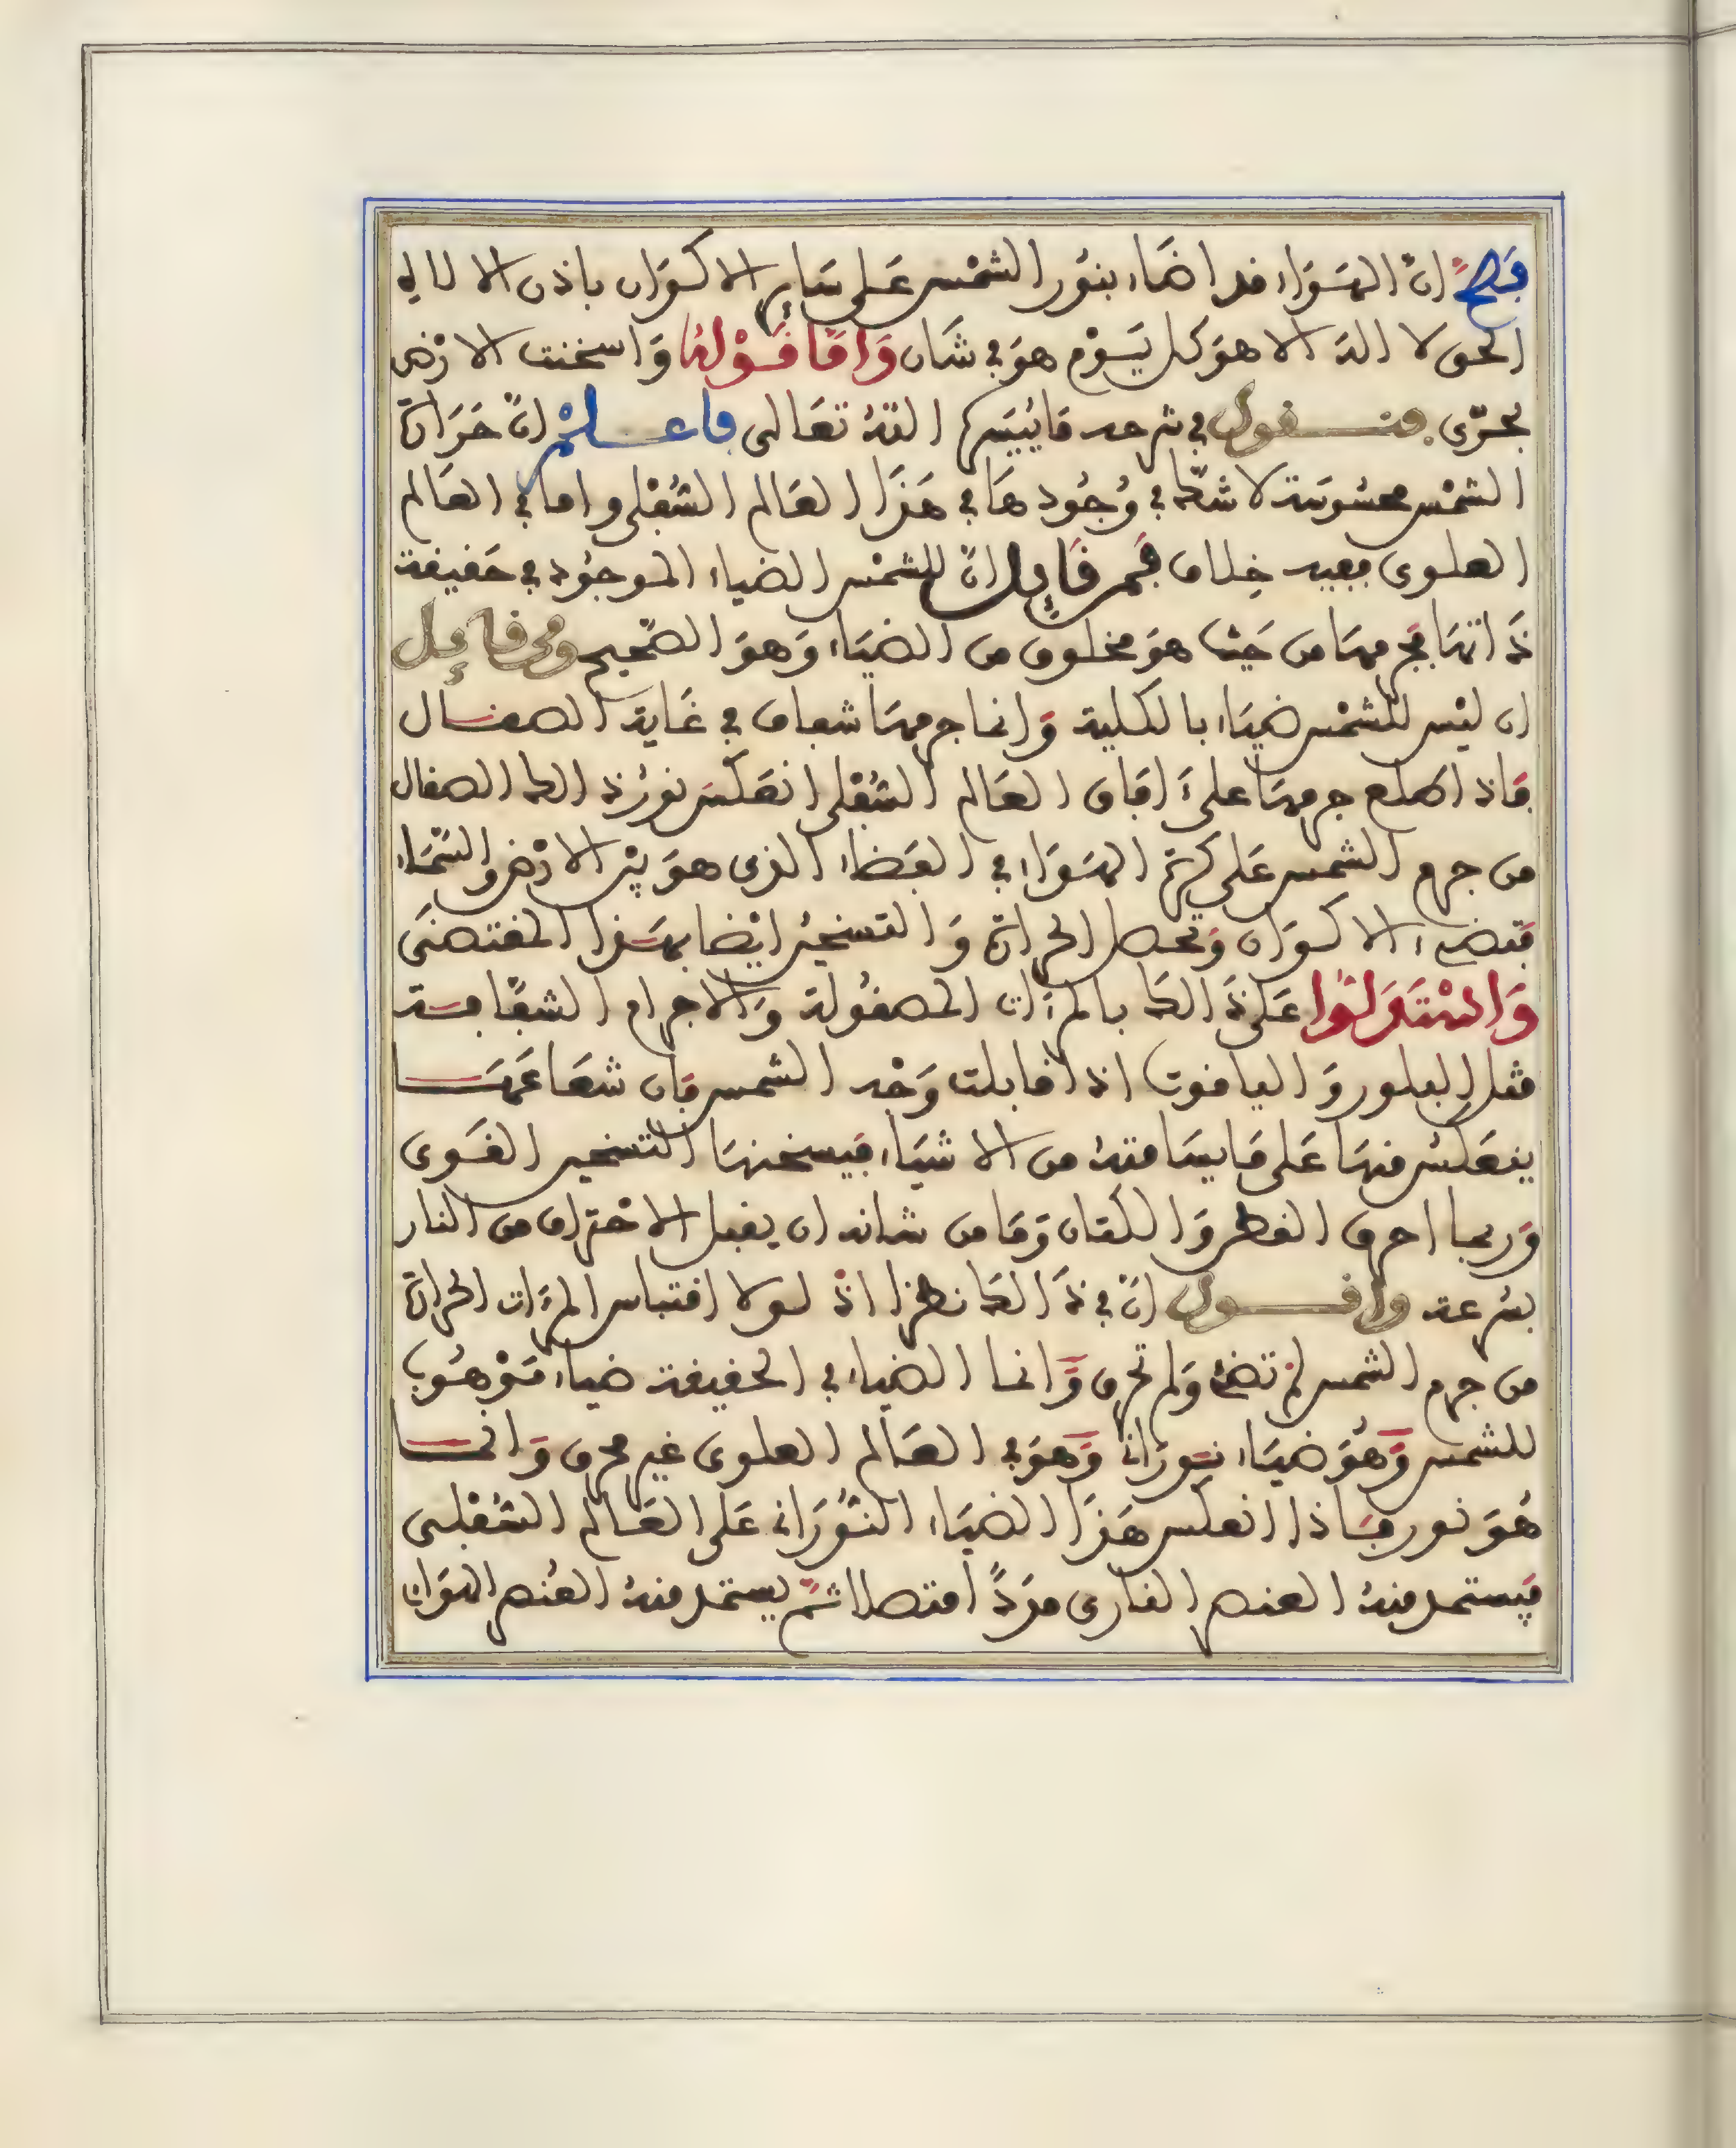 فصحّ انّ الهَوَاء قد اضَاء بنوُر الشمْس عَلى سَاير الاكوَان باذن الالاه
الحق لا الهَ الا هوَ كل يَوْم هوَ في شَان وَامَّا قَوْلهُ وَاسخنت الارْض
بحرّى فنـقول في شرحه مَا يُيَسّره اللهُ تعَالى فاعلمْ انّ حَرَارة
الشمْس محسُوسَة لا شكّ في وُجُودهَا في هَذَا العَالم السُّفْلى واما في العَالم
العلوى ففيه خِلاف فَمن قَايل انّ للشمْس الضياء الموجُود في حَقيقة
ذَاتهَا فجرمهَا من حَيْث هوَ مخلوق من الضيَاء وَهوَ الصّحيح ومن قايل
ان ليْس للشمْس ضيَاء بالكلية وَانما جرمهَا شفاف في غَاية الصقـال
فَاذا طلع جرمهَا علىَ افَاق العَالم السُّفْلى انعَكسَ نورُ ذالك الصقال
من جرم الشمس عَلى كرة الهَوَاء في الفَضَاء الذى هوَ بيْن الارْض والسَّمَاء
فتضىء الاكوَان وَتحصل الحرارة وَالتسخينُ ايْضا بهَذا المقتضَى
وَاسْتَدَلوُا عَلى ذَالك بالمرءَات المصقُولة وَالاجرام الشفّافـة
مثل البلور وَالياقوت اذا قابلت وَجْه الشمس فَان شعَاعَهَـا
ينعَكسُ منهَا عَلى مَا يسَامتهُ من الاشيَاء فيسخنهَا التسخين القَوى
وَربما احرق القطن وَالكتان وَمَا من شانه ان يقبل الاحْتراق من النار
بسُرعة واقـول انّ في ذَالك نظرا اذْ لولا اقتباس المرءَات الحرارة
من جرم الشمس لمْ تضئْ وَلم تحرق وَانما الضيَاء في الحقيقة ضياء مَوْهُوب
للشمس وَهُوَ ضيَاء نوُرَانى وَهوَ في العَالم العلوى غير محرق وَانمـا
هُوَ نور فَاذا انعكس هَذَا الضيَاء النُّورَانى عَلى العَالم السُّفْلى
فيَستمد منهُ العنصر النارى مَدَدًا متصلا ثمّ يستمد منهُ العُنصر الهوَاى